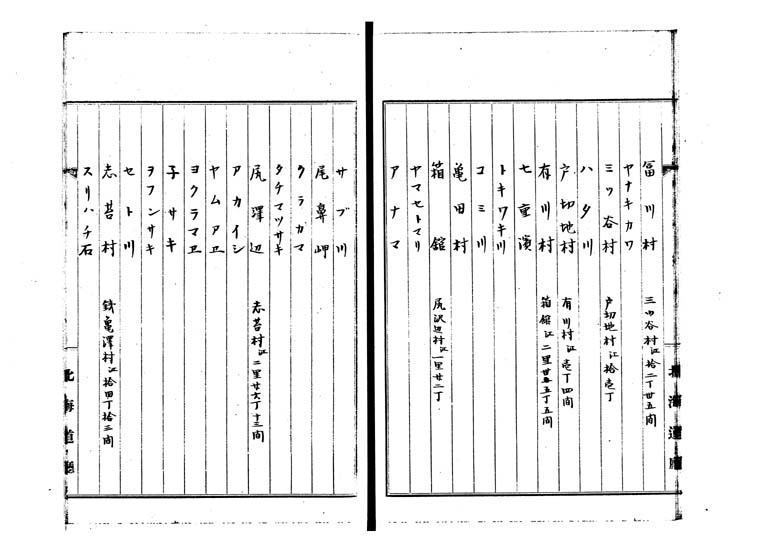 冨川村 三ツ谷村江拾二丁廿五間
ヤナキカワ
ミツ谷村 戸切地村江拾壱丁
ハタ川
戸切地村 有川村江壱丁四間
有川村 箱舘江二里廿五丁五間
七重濱
トキワキ川
コミ川
亀田村
箱舘 尻沢辺村江一里廿二丁
ヤマセトマリ
アナマ
北海道廳
サブ川
尾鼻岬
クラガマ
タチマツサキ
尻澤辺 志苔村江二里廿六丁十三間
アカイシ
ヤムアヱ
ヨクラマヱ
子サキ
ヲフンサキ
セト川
志苔村 銭亀澤村江拾四丁拾三間
スリハチ石
北海道廳